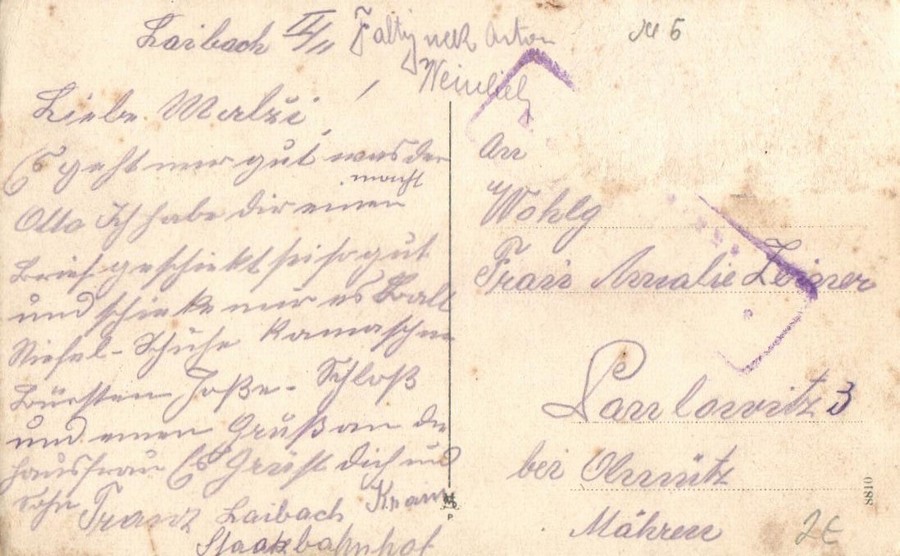 Laibach II/11
Faltynek Anton
№ 6
Liebe Malzi,
Es geht mir gut was der
macht
Otto Ich habe dir einen
Brief geschickt sei so gut
und schicke mir es Bald
Stiefel-Schuhe Kamaschen
Bürsten Hoße- Schloß
und einen Gruß an die
Hausfrau Es Grüßt dich und
Sohn Franz Laibach Krain
Staatsbahnhof
An
Wohlg
Frau Amalie
Paulowitz 3
bei Olmütz
Mähren
8810
P
2€